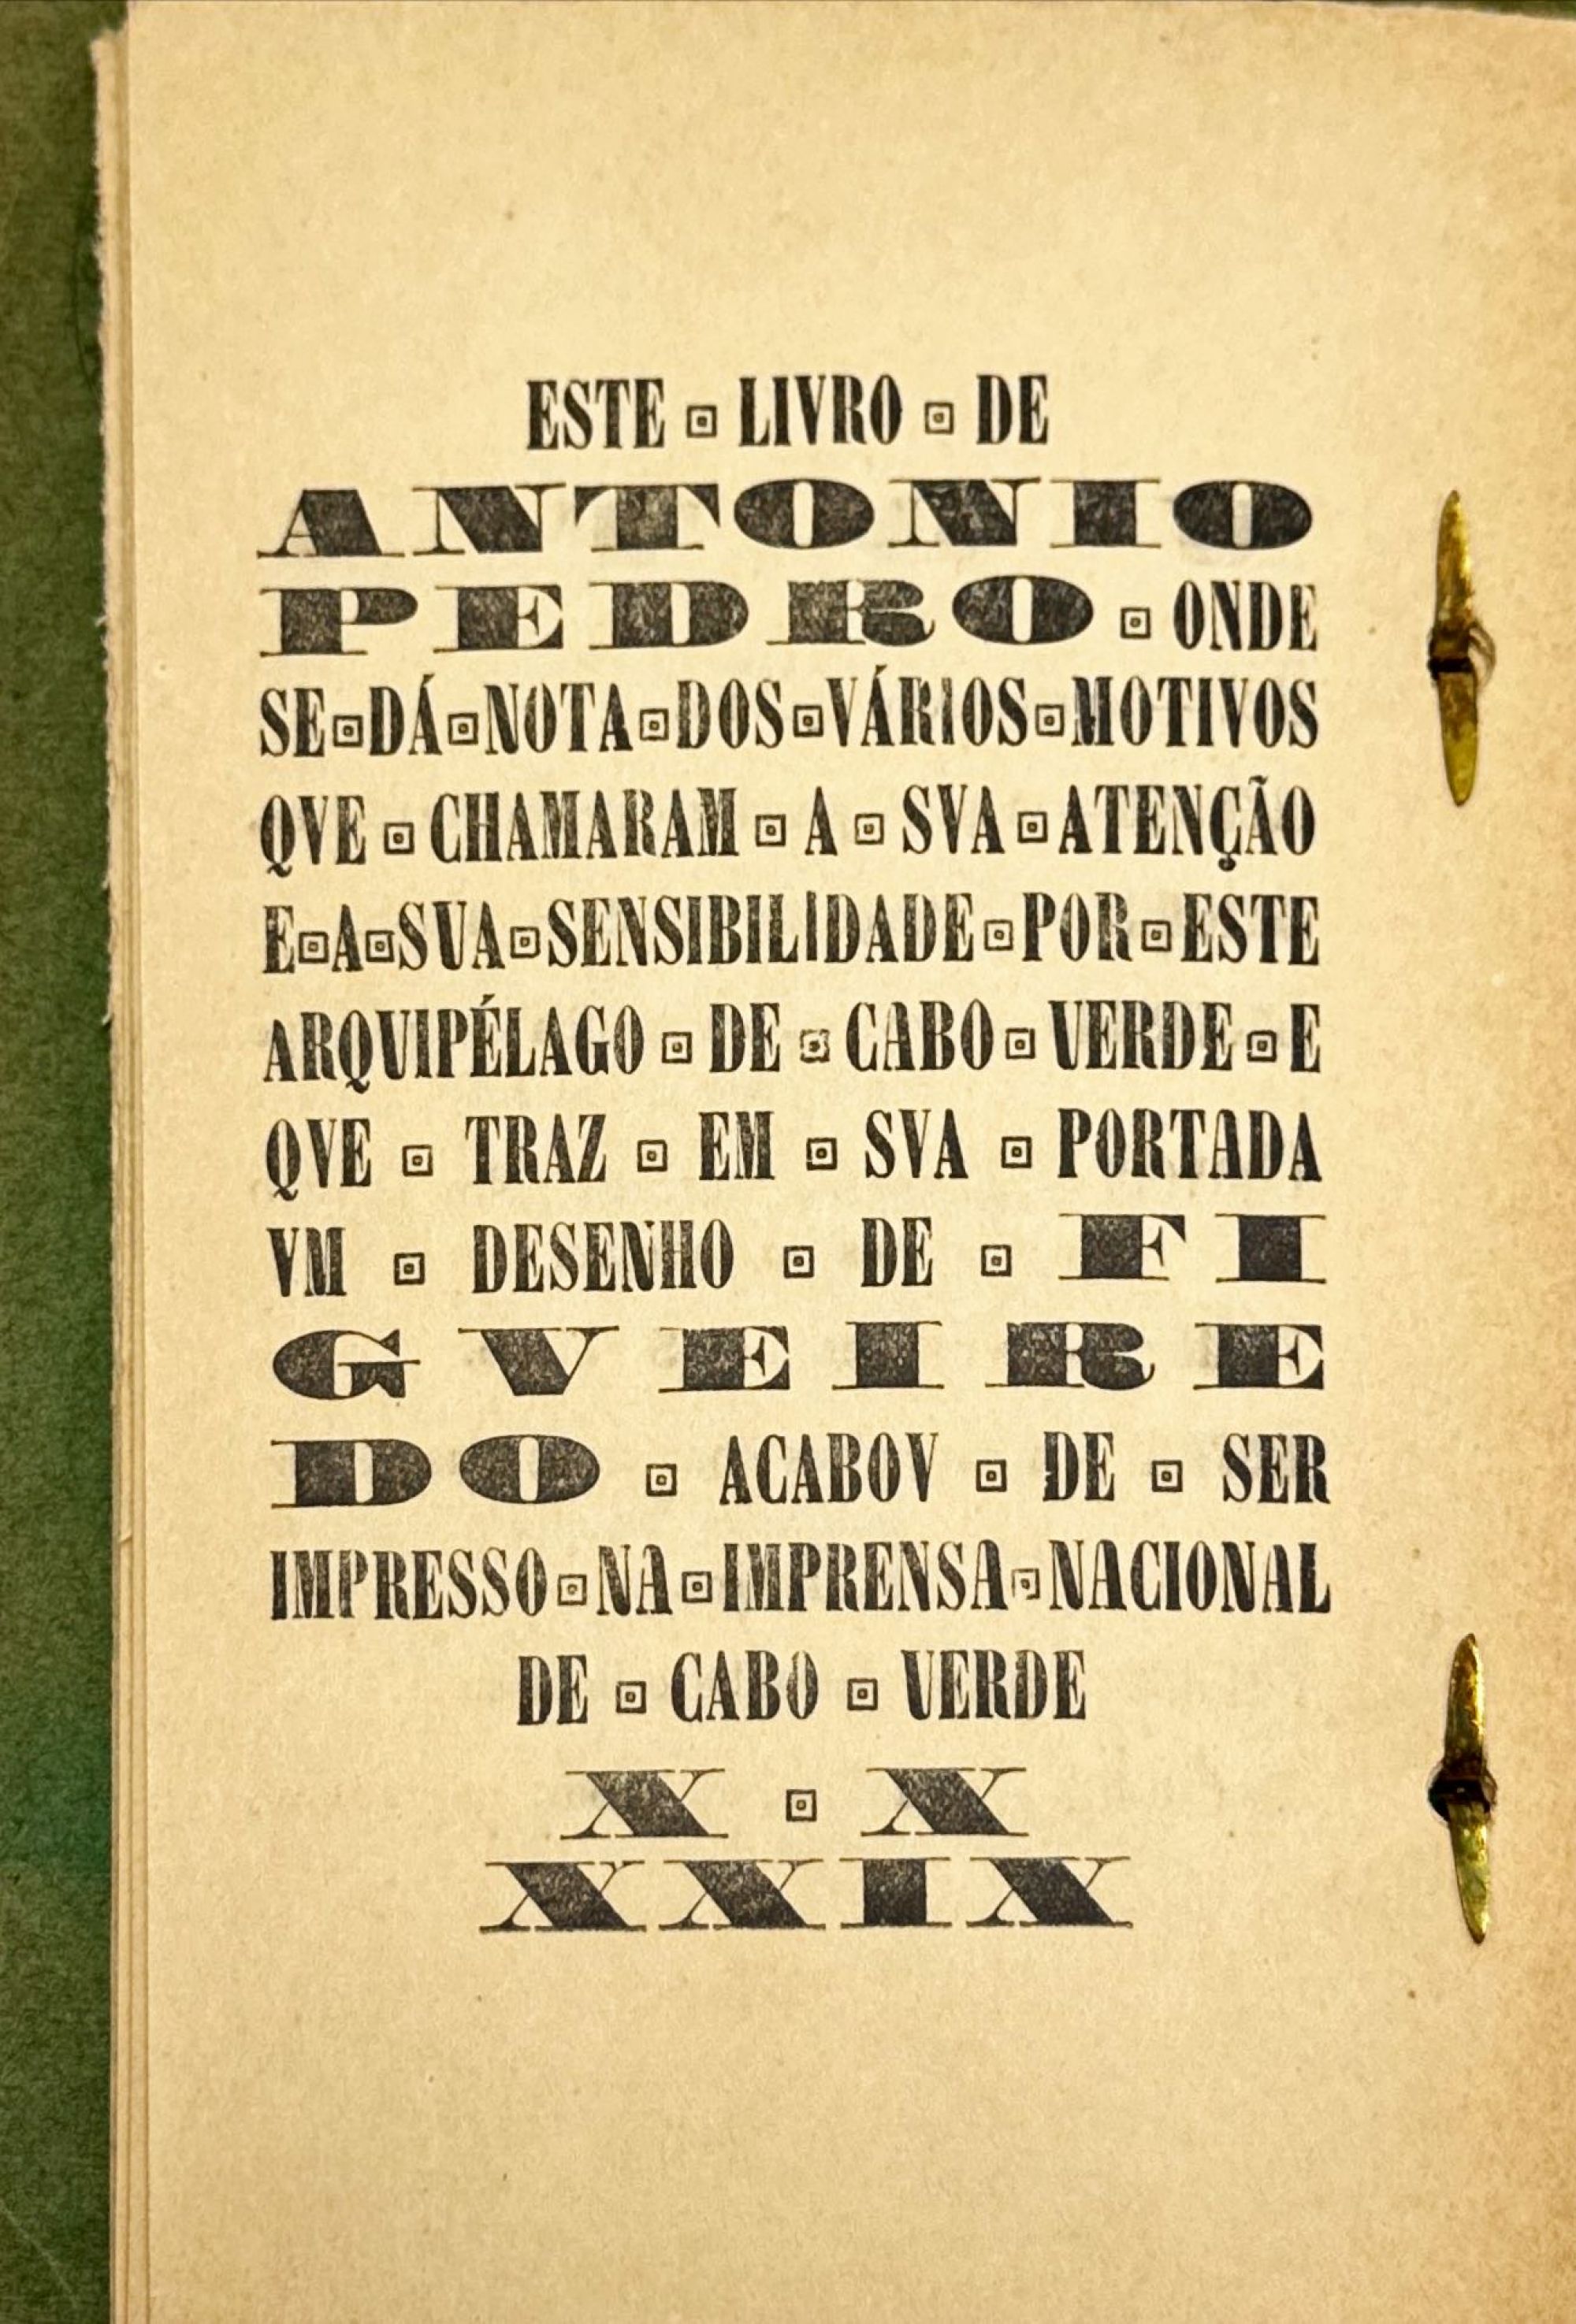 ESTE ▣ LIVRO ▣ DE
ANTONIO
PEDRO ▣ ONDE
SE▣DÁ▣NOTA▣DOS▣VÁRIOS▣MOTIVOS
QVE ▣ CHAMARAM ▣ A ▣ SVA ▣ ATENÇÃO
E▣A▣SUA▣SENSIBILIDADE▣POR▣ESTE
ARQUIPÉLAGO ▣ DE ▣ CABO ▣ VERDE ▣ E
QVE ▣ TRAZ ▣ EM ▣ SVA ▣ PORTADA
VM ▣ DESENHO ▣ DE ▣ FI
GVEIRE
DO ▣ ACABOV ▣ DE ▣ SER
IMPRESSO▣NA▣IMPRENSA▣NACIONAL
DE ▣ CABO ▣ VERDE
X ▣ X
XXIX